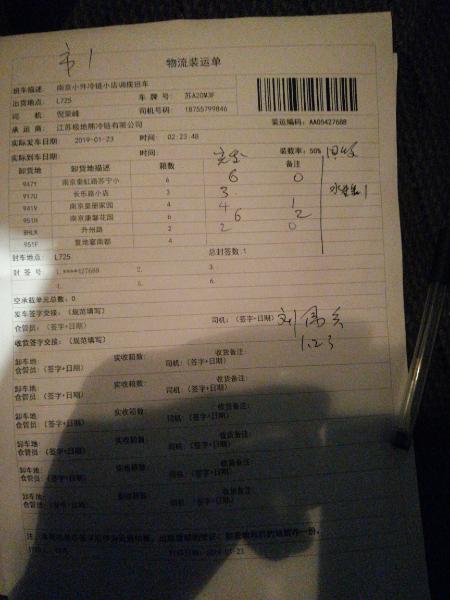 市1
物流装运单
班车描述: 南京小外冷链小店调拨班车
出货地点: L725 车 牌 号: 苏A20M3F
司 机: 倪荣峰 司机号码: 18755799846
承 运 商: 江苏极地熊冷链有限公司 装运编码: AA05427688
实际发车日期: 2019-01-23 时间: 02:23:48
实际到车日期: 时间: 装载率: 50%
卸货地 卸货地描述 箱数 备注
947Y 南京秦虹路苏宁小 6 6 0
917U 长乐路小店 3 3
9419 南京皇册家园 4 4 1
951H 南京康馨花园 6 6 2
8HLK 升州路 2 2 0
951F 复地宴南都 4
封车地点: L725 总封签数:1
封 签 号: 1.****427688 2. 3.
4. 5. 6.
空承载单元总数: 0
发车签字交接: (规范填写)
仓管员: (签字+日期) 司机: (签字+日期)
1.23
收货签字交接: (规范填写)
卸车地: 实收箱数: 收货备注:
仓管员: (签字+日期) 司机: (签字+日期)
卸车地: 实收箱数: 收货备注:
仓管员: (签字+日期) 司机: (签字+日期)
卸车地: 实收箱数: 收货备注:
仓管员: (签字+日期) 司机: (签字+日期)
卸车地: 实收箱数: 收货备注:
仓管员: (签字+日期) 司机: (签字+日期)
卸车地: 实收箱数: 收货备注:
仓管员: (签字+日期) 司机: (签字+日期)
卸车地: 实收箱数: 收货备注:
仓管员: (签字+日期) 司机: (签字+日期)